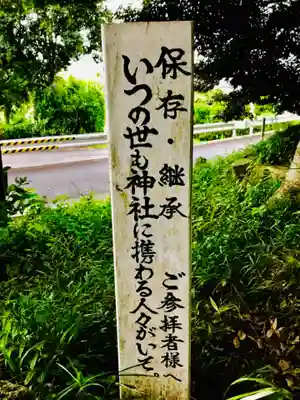 保存・継承　ご参拝者様へ
いつの世も神社に携わる人々がいそ。